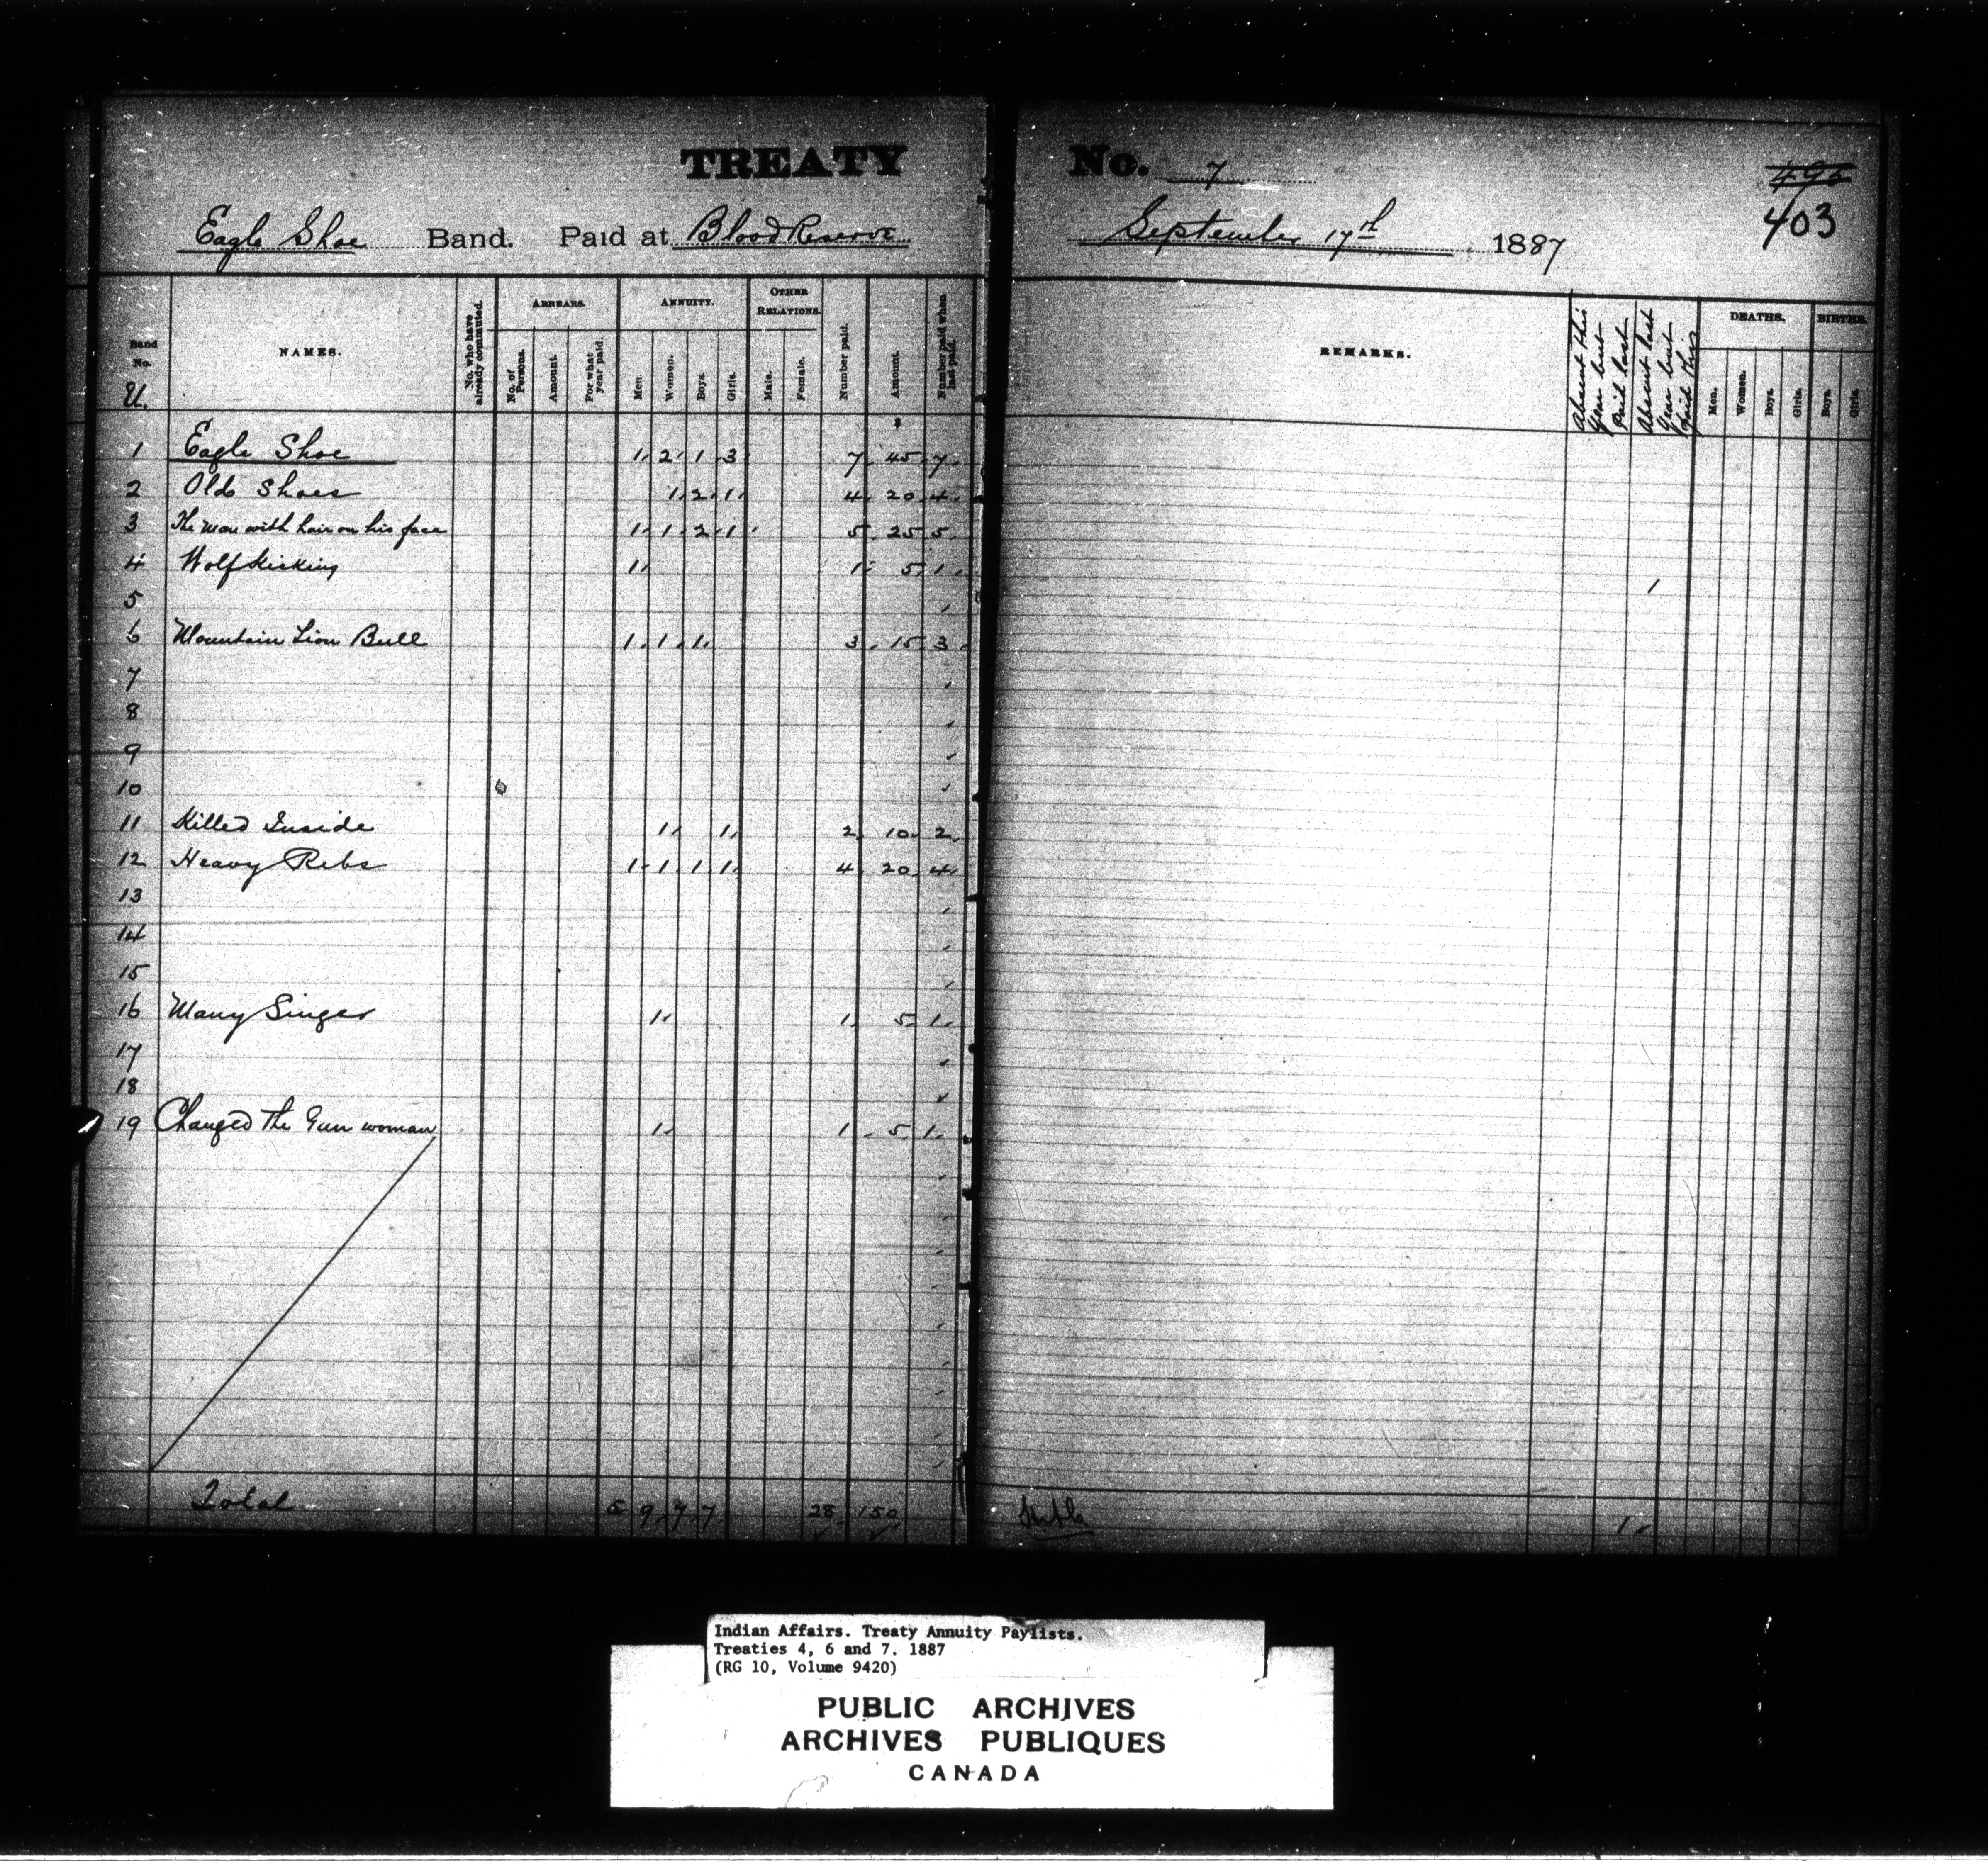 TREATY No. 7
496
403
Eagle Shoe Band. Paid at Blood Reserve September 17th 1887
Band No. U. NAMES. No. who have already commuted. ARREARS. No. of Persons. Amount. For what year paid. ANNUITY. Men. Women. Boys. Girls. OTHER RELATIONS. Male. Female. Number paid. Amount. Number paid when last paid. REMARKS. Absent this Year but Paid last Absent last Year but paid this DEATHS. Men. Women. Boys. Girls. BIRTHS. Boys. Girls.
1 Eagle Shoe 1 2 1 3 7 45 7
2 Old Shoes 1 2 1 4 20 4
3 The Man with hair on his face 1 1 2 1 5 25 5
4 Wolf Kicking 1 1 5 1 1
5
6 Mountain Lion Bull 1 1 1 3 15 3
7
8
9
10
11 Killed Inside 1 1 2 10 2
12 Heavy Ribs 1 1 1 1 4 20 4
13
14
15
16 Many Singer 1 1 5 1
17
18
19 Changed the Gun woman 1 1 5 1
Total 5 9 7 7 28 150 1
Indian Affairs. Treaty Annuity Paylists.
Treaties 4, 6 and 7. 1887
(RG 10, Volume 9420)
PUBLIC ARCHIVES
ARCHIVES PUBLIQUES
CANADA